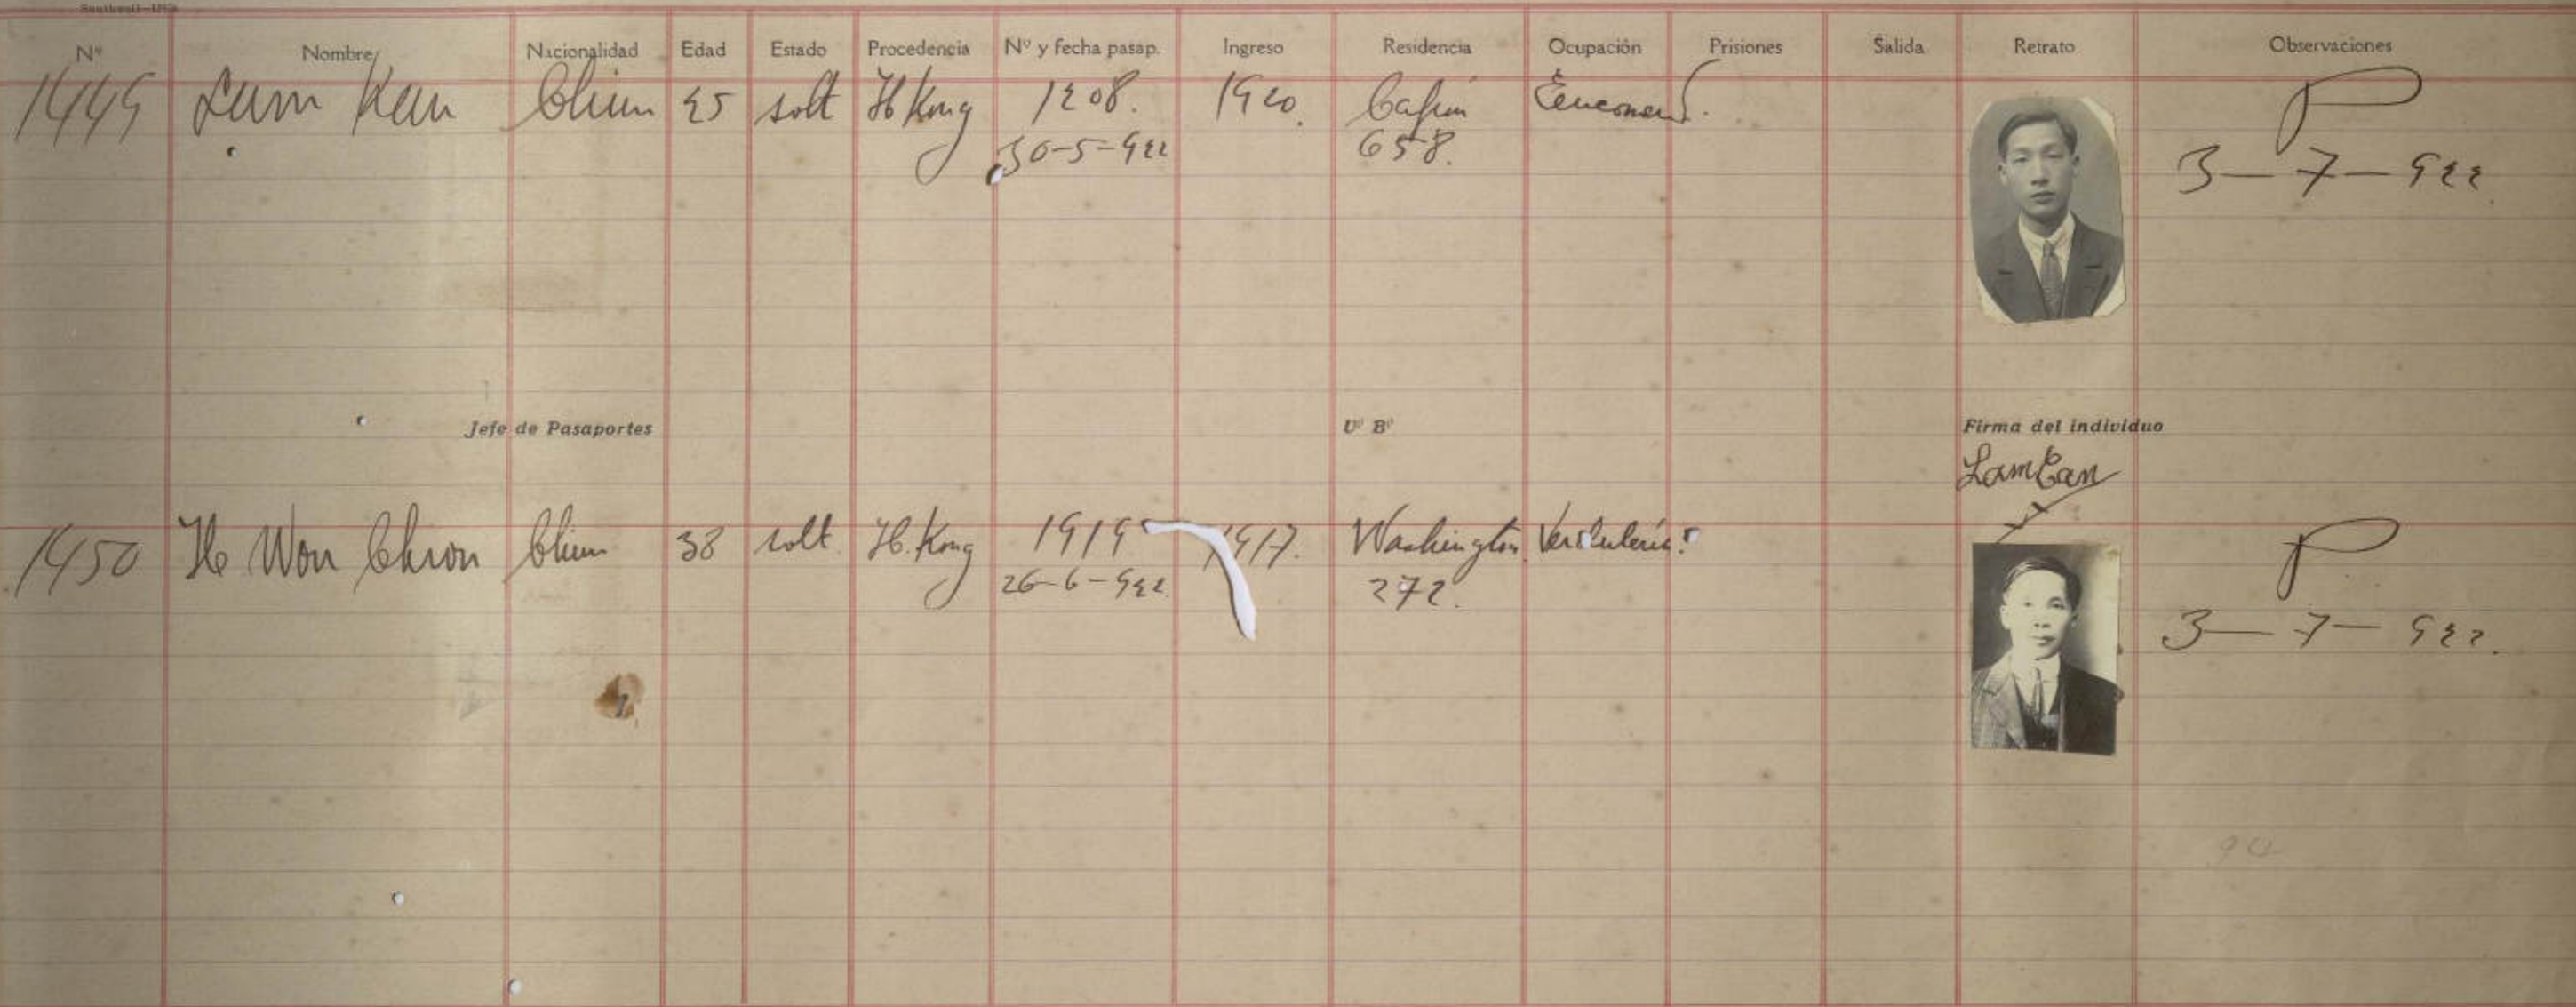 Nº Nombre Nacionalidad Edad Estado Procedencia Nº y fecha pasap. Ingreso Residencia Ocupación Prisiones Salida Retrato Observaciones
1449 Lam Kan 25 solt H Kong 1208. 1920. P
30-5-922 658. 3-7-922
Jefe de Pasaportes Vº Bº Firma del individuo
Lam Can
1450 Won solt. H. Kong 1919 1917. Washington P
26-6-922 272. 3-7-922.